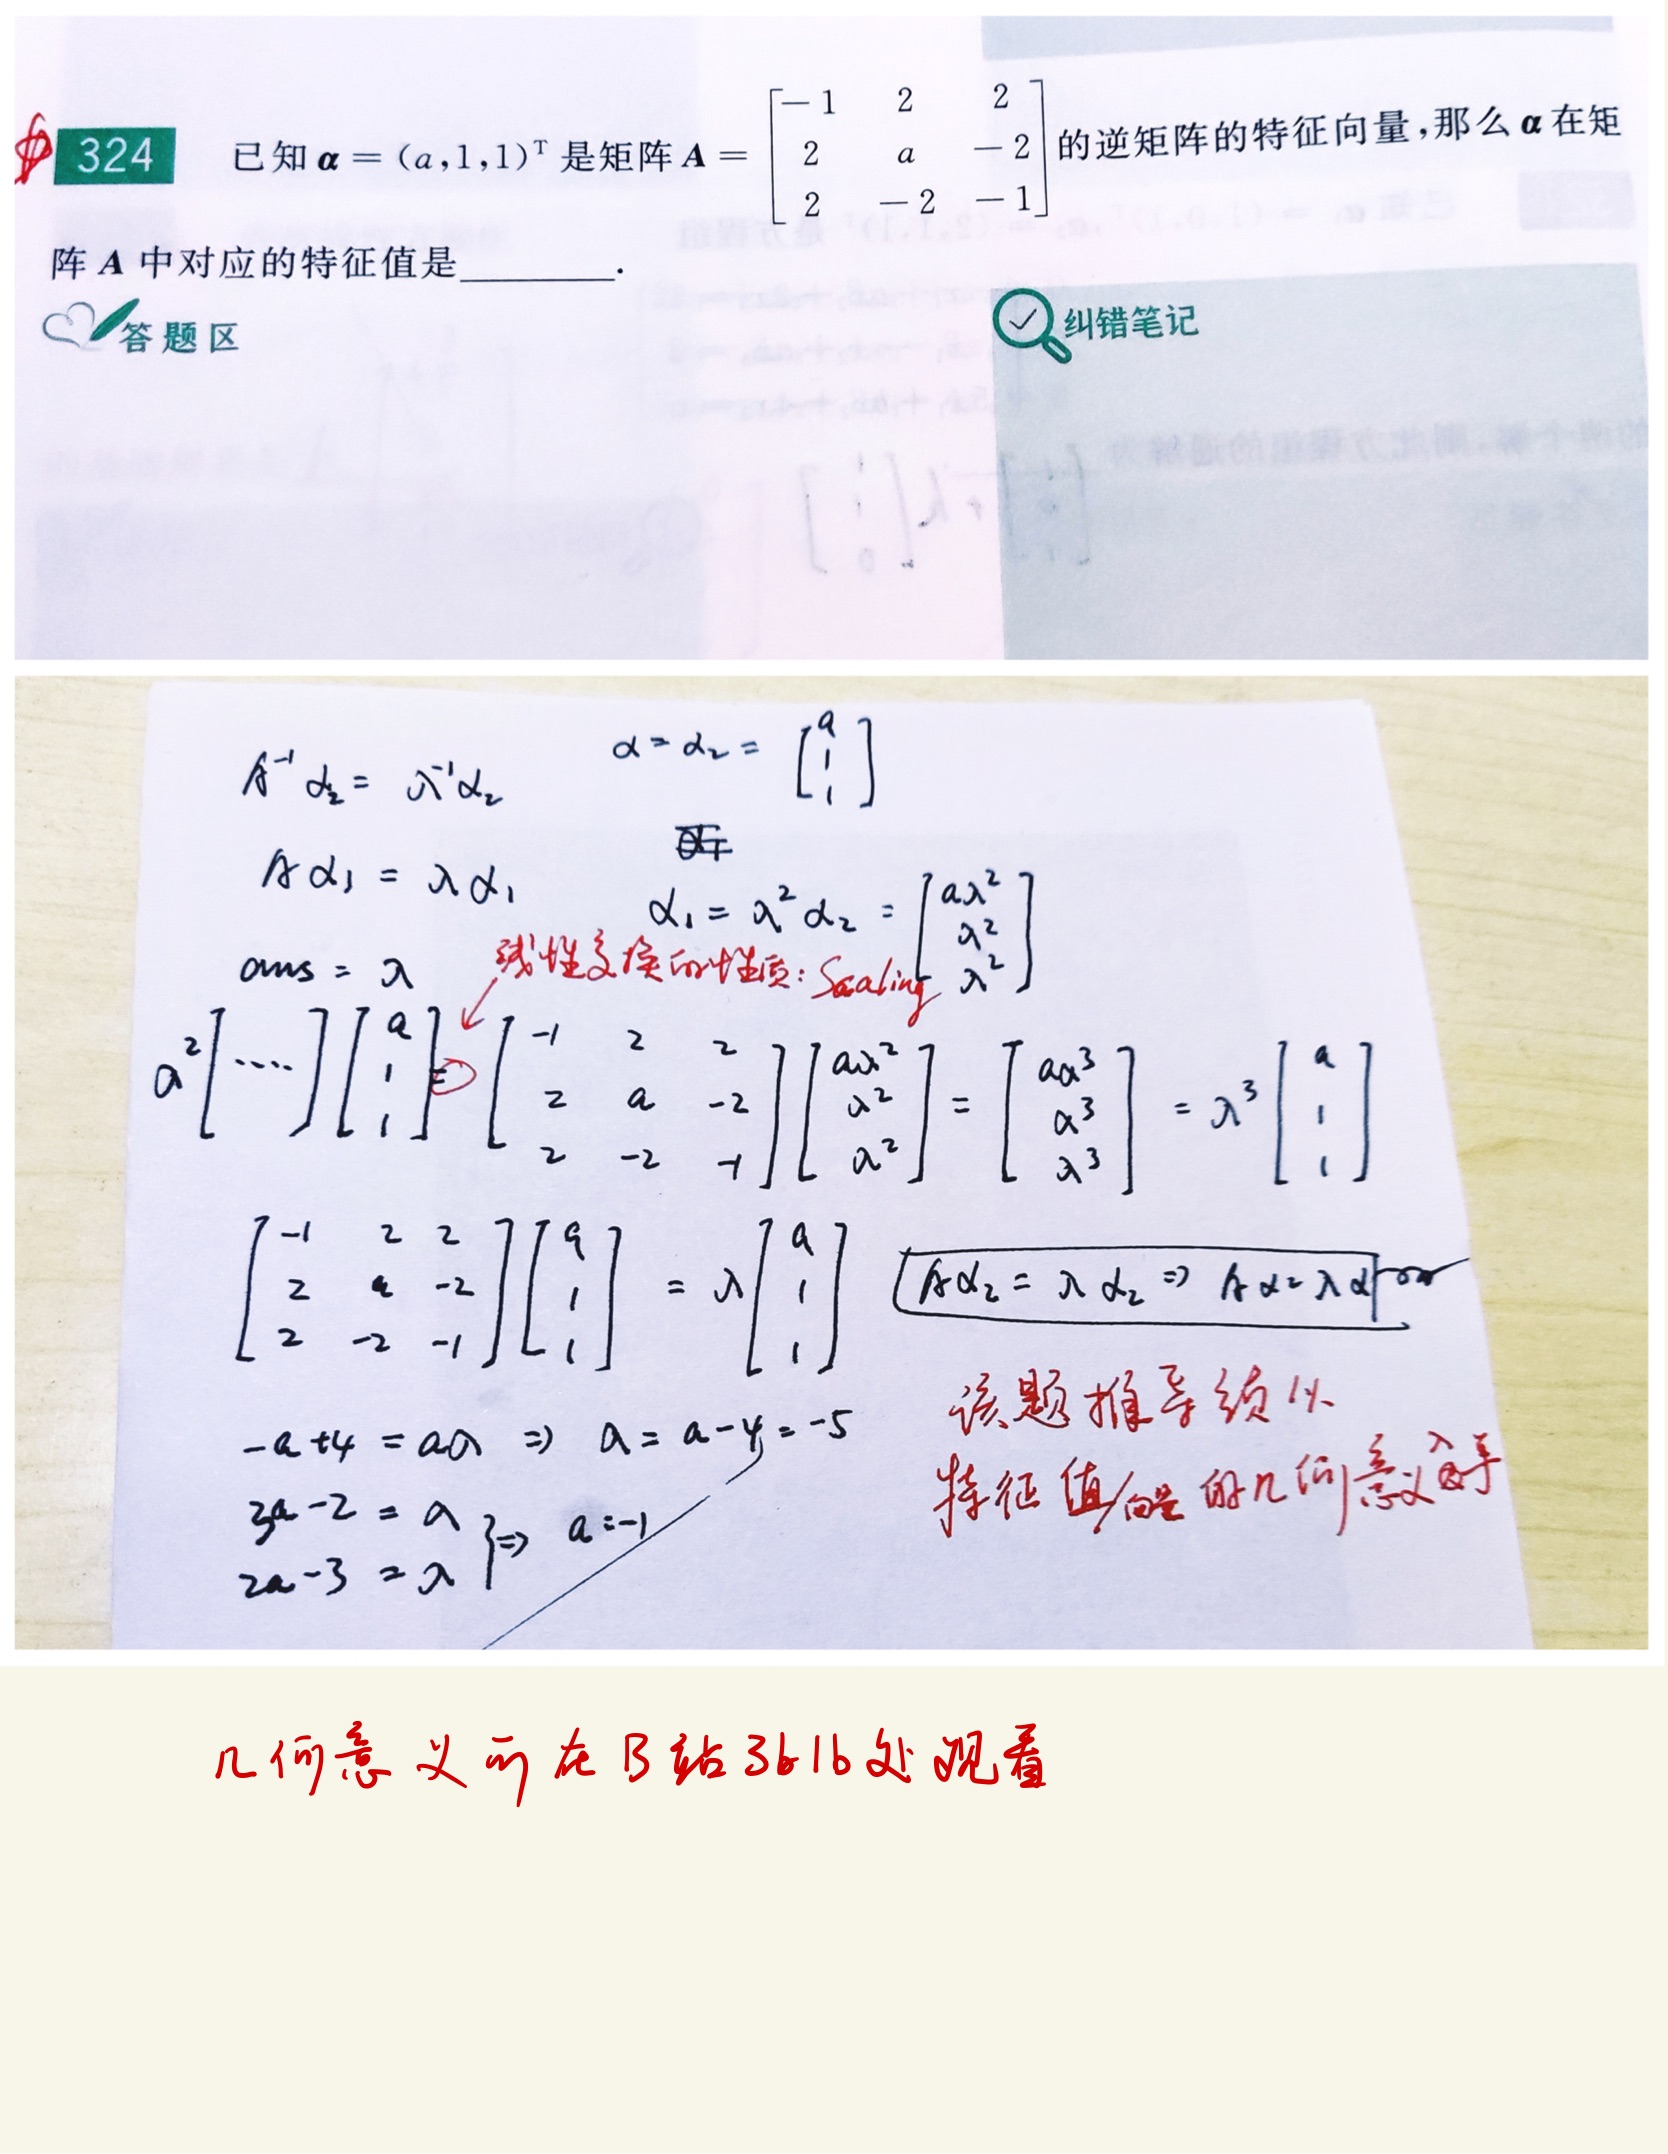 324 已知 α = (a,1,1)ᵀ 是矩阵 A = [−1 2 2; 2 a −2; 2 −2 −1] 的逆矩阵的特征向量,那么 α 在矩
阵 A 中对应的特征值是________.
答题区
纠错笔记
A⁻¹α₂ = λ⁻¹α₂
α = α₂ = [a; 1; 1]
Aα₁ = λα₁
α₁ = λ²α₂ = [aλ²; λ²; λ²]
ans = λ
线性变换的性质: Scaling
λ²[....][a; 1; 1] = [−1 2 2; 2 a −2; 2 −2 −1][aλ²; λ²; λ²] = [aλ³; λ³; λ³] = λ³[a; 1; 1]
[−1 2 2; 2 a −2; 2 −2 −1][a; 1; 1] = λ[a; 1; 1]
Aα₂ = λα₂ ⇒ Aα = λα
−a+4 = aλ ⇒ λ = a−4 = −5
3a−2 = λ
2a−3 = λ
} ⇒ a = −1
该题推导须从
特征值/向量的几何意义入手
几何意义可在B站3b1b处观看